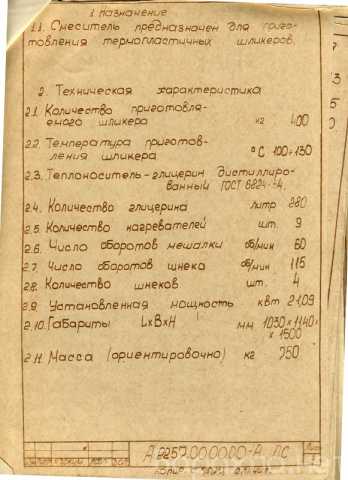 1. Назначение
1.1. Смеситель предназначен для приго-
товления термопластичных шликеров.
2. Техническая характеристика
2.1. Количество приготовля-
емого шликера кг 400
2.2. Температура приготов-
ления шликера °С 100÷130
2.3. Теплоноситель-глицерин дистиллиро-
ванный ГОСТ 6824-
2.4. Количество глицерина литр 280
2.5. Количество нагревателей шт. 9
2.6. Число оборотов мешалки об/мин 60
2.7. Число оборотов шнека об/мин 115
2.8. Количество шнеков шт. 4
2.9. Установленная мощность квт 21.09
2.10. Габариты LxBxH мм 1030×1140×
×1500
2.11. Масса (ориентировочно) кг 750
А2257.000000-А ПС